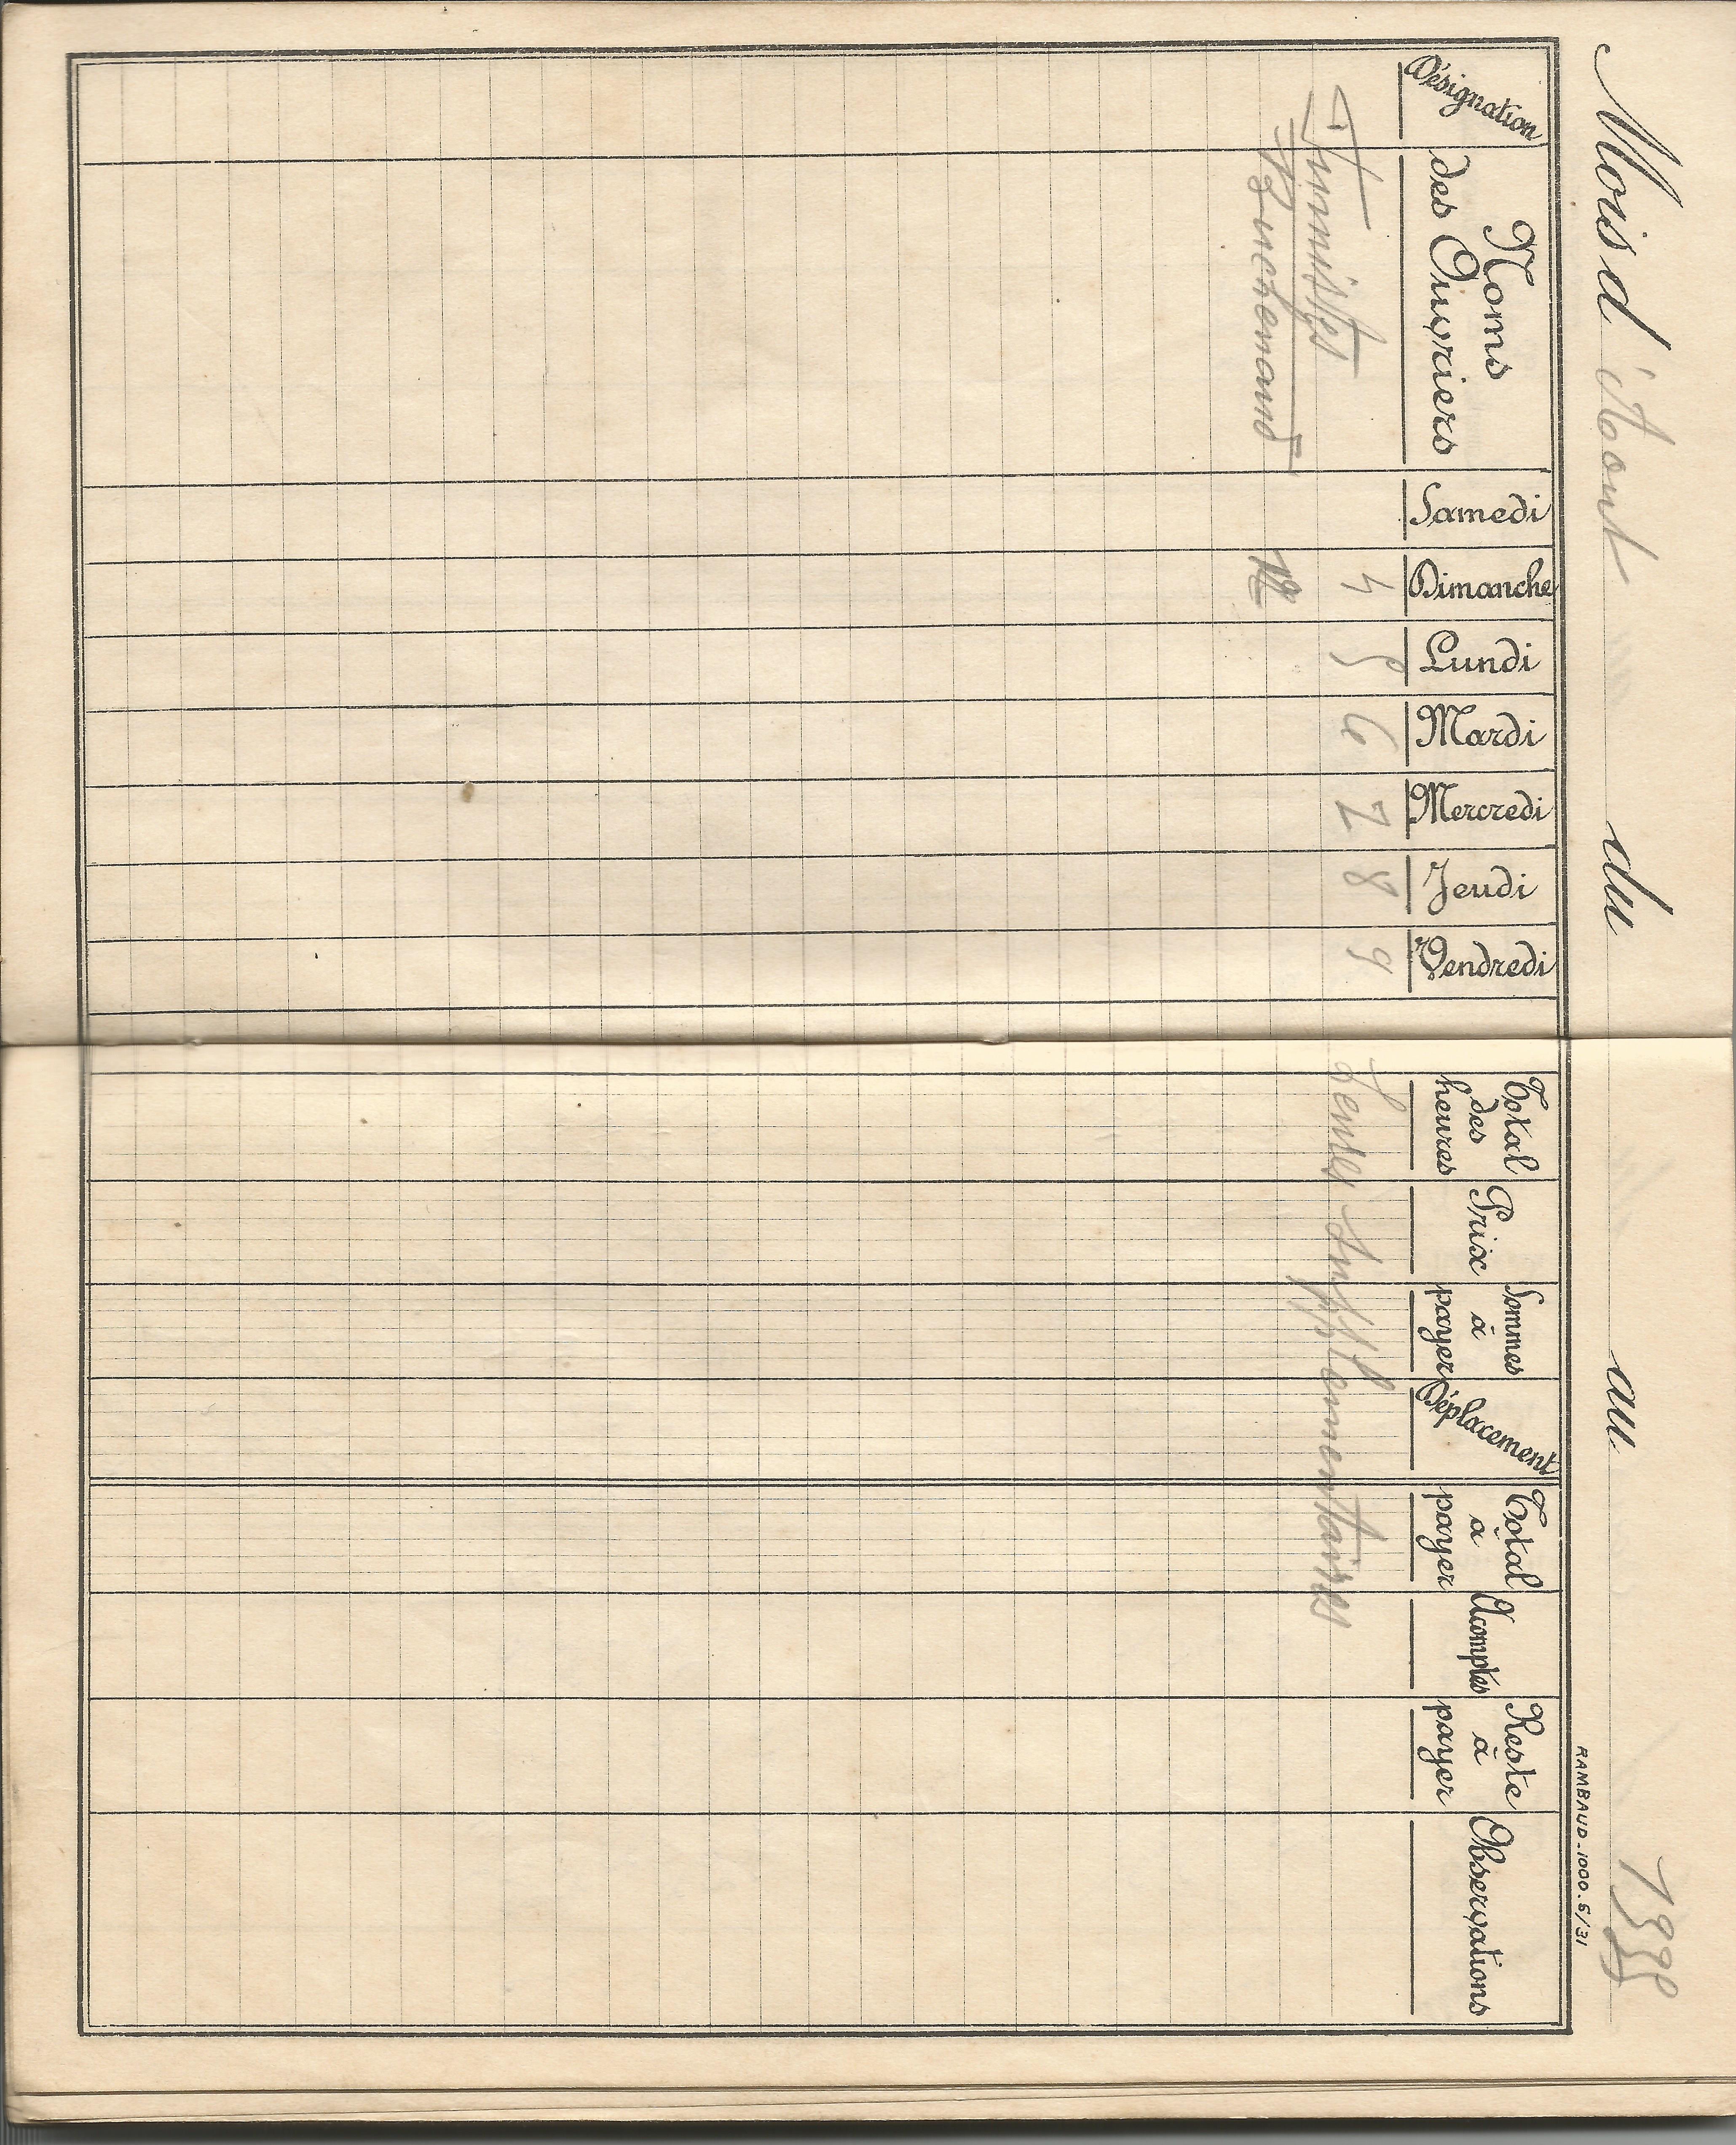 Mois d'Aout du au 1935
RAMBAUD-1000.5/31
Désignation
Noms
des Ouvriers
Samedi
Dimanche
Lundi
Mardi
Mercredi
Jeudi
Vendredi
Total
des
heures
Prix
Sommes
à
payer
Déplacement
Total
à
payer
Acomptes
Reste
à
payer
Observations
4 5 6 7 8 9
heures supplementaires
Fumistes
12